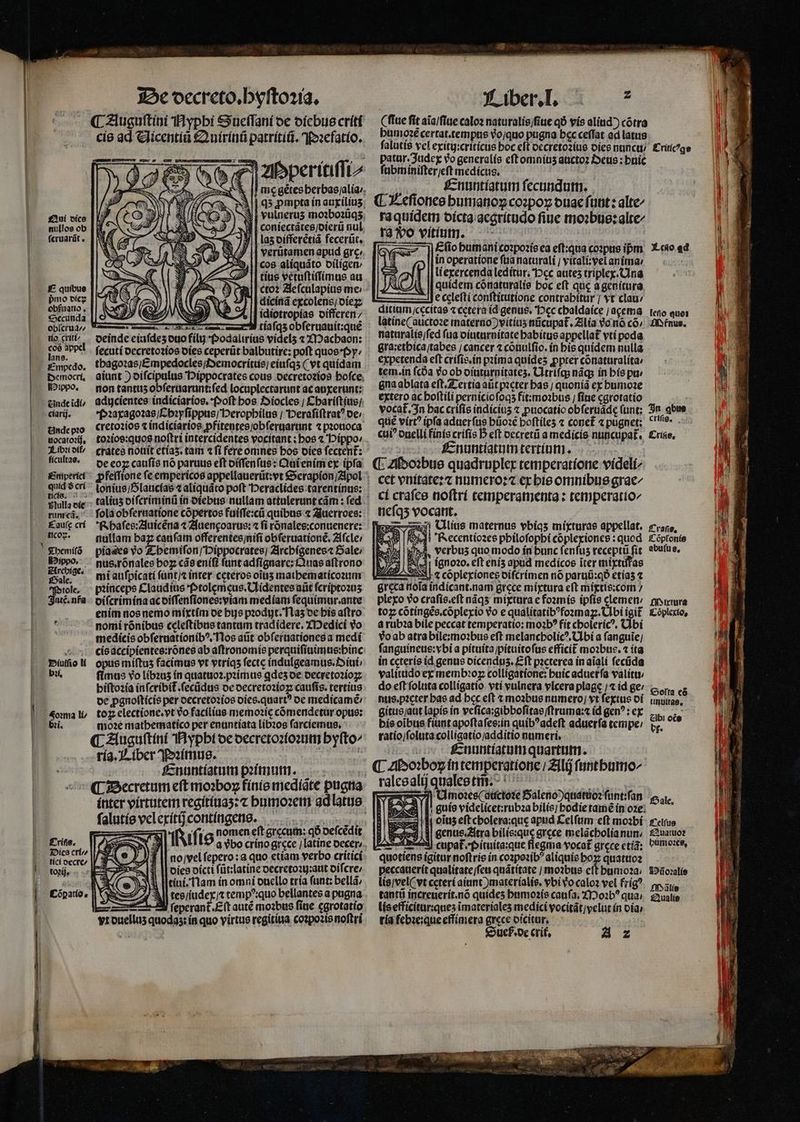 De decreto. hystoria.
Liber. I. 2
¶ Augustini Niphi Suessani de diebus criti
cis ad Vicentiũ Quirinũ patritiũ. Prefatio.
mę gẽtes herbas/alia/
q3 prompta in auxiliu3
vulneru3 morborũq3
coniectãtes/dierũ nul
las differẽtiã fecerũt.
verũtamen apud gre/
cos aliquãto diligen/
tius vetustissimus au
ctor Aesculapius me/
dicinã excolens/dieꝝ
idiotropias differen/
tiasq3 obseruauit:quẽ
deinde eiusde3 duo filij Podalirius videl3 ⁊ Machaon:
secuti decretorios dies ceperũt balbutire: post quos Py/
thagoras/Empedocles/Democritus/eiusq3 (vt quidam
aiunt) discipulus Hippocrates cous decretorios hosce
non tantu3 obseruarunt:sed locuplectarunt ac auxerunt:
adijcientes indiciarios. Post hos Diocles / Charistius/
Praxagoras/Chrysippus/Herophilus / Herasistratꝰ de/
cretorios ⁊ indiciarios profitentes/obseruarunt ⁊ prouoca
torios:quos nostri intercidentes vocitant: hos ⁊ Hippo/
crates nouit etia3. tam ⁊ si fere omnes hos dies sectent̃:
de eoꝝ causis nõ paruus est dissensus: Qui enim ex ipsa
professione se empericos appellauerũt:vt Serapion/Apol
lonius/Glaucias ⁊ aliquãto post Heraclides tarentinus:
taliu3 discriminũ in diebus nullam attulerunt cãm: sed
sola obseruatione cõpertos fuisse:cũ quibus ⁊ Auerroes:
Rhases:Auicẽna ⁊ Auençoarus: ⁊ si rõnales:conuenere:
nullam haꝝ causam offerentes/nisi obseruationẽ. Ascle/
piades vo Themison/Hippocrates/ Archigenes⁊ Gale/
nus.rõnales hoꝝ cãs enisi sunt adsignare: Quas astrono
mi auspicati sunt/⁊ inter cęteros oiu3 mathematicorum
princeps Claudius Ptolęmęus. Uidentes aũt scriptoru3
discrimina ac dissensiones:viam mediam sequimur.ante
enim nos nemo mixtim de hijs prodijt. Na3 de his astro
nomi rõnibus cęlestibus tantum tradidere. Medici vo
medicis obseruationibꝰ. Nos aũt obseruationes a medi
cis accipientes:rõnes ab astronomis perquisiuimus:hinc
opus mistus facimus vt vtriq3 sectę indulgeamus. Diui/
simus vo librus in quatuor.primus qde3 de decretorioꝝ
historia inscribit̃.secũdus de decretorioꝝ causis. tertius
de prognosticis per decretorios dies.quartꝰ de medicamẽ/
toꝝ electione.vt vo facilius memorię cõmendetur opus:
more mathematico per enuntiata libros sarciemus.
¶ Augustini Niphi de decretoriorum hysto/
ria. Liber Primus.
Enuntiatum primum.
¶ Decretum est morboꝝ finis mediãte pugna
inter virtutem regitiua3: ⁊ humorem ad latus
salutis vel exitij contingens.
nomen est gręcum: qõ descẽdit
a vbo crino gręce / latine decer/
no/vel sepero: a quo etiam verbo critici
dies dicti sũt:latine decretorij:aut discre/
tiui. Nam in omni duello tria sunt: bellã/
tes/iudex/⁊ tempꝰ:quo bellantes a pugna
seperant̃. Est autẽ morbus siue ęgrotatio
vt duellu3 quoda3: in quo virtus regitiua corporis nostri
(siue sit aĩa/siue calor naturalis/siue qõ vis aliud) cõtra
humorẽ certat.tempus vo/quo pugna hęc cessat ad latus
salutis vel exitij:criticus hoc est decretorius dies nuncu/
patur. Iudex vo generalis est omnius auctor Deus: huic
subminister/est medicus.
Enuntiatum secundum.
¶ Lesiones humanoꝝ corpoꝝ duae sunt: alte/
ra quidem dicta aegritudo siue morbus: alte/
ra vo vitium.
Esio humani corporis ea est:qua corpus ipm
in operatione sua naturali / vitali:vel anima/
li exercenda leditur. Hęc autes triplex. Una
quidem cõnaturalis hoc est quę a genitura
e cęlesti constitutione contrahitur / vt clau/
ditium/cęcitas ⁊ cętera id genus. Hęc chaldaice / açema
latine(auctore materno)vitiu3 nũcupat̃. Alia vo nõ cõ/
naturalis/sed sua diuturnitate habitus appellat̃ vti poda
gra:ethica/tabes / cancer ⁊ cõnulsio. in his quidem nulla
expetenda est crisis.in prima quide3 propter cõnaturalita/
tem.in scda vo ob diuturnitate3. Utrisq3 nãq3 in his pu/
gna ablata est. Tertia aũt pręter has / quoniã ex humore
extero ac hostili pernicioso q3 fit:morbus / siue ęgrotatio
vocat̃. In hac crisis indiciu3 ⁊ prouocatio obseruãdę sunt:
quẽ virtꝰ ipsa aduersus hũore hostiles ⁊ conet̃ ⁊ pugnet:
cuiꝰ duelli finis crisis hęc est decretũ a medicis nuncupat̃.
Enuntiatum tertium.
¶ Morbus quadruplex temperatione videli/
cet vnitate: ⁊ numero: ⁊ ex his omnibus grae/
ci crases nostri temperamenta : temperatio/
nesq3 vocant.
Ulius maternus vbiq3 mixturas appellat.
Recentiores philosophi cõplexiones : quod
verbu3 quo modo in hunc sensu3 receptũ sit
ignoro. est eni3 apud medicos iter mixturas
⁊ cõplexiones discrimen nõ paruũ:qõ etia3 ⁊
gręca noĩa indicant.nam gręce mixtura est mixtis:com /
plexo vo crasis.est nãq3 mixtura e formis ipsis elemen/
toꝝ cõtingẽs.cõplexio vo e qualitatibꝰformaꝝ. Ubi igit̃
a rubra bile peccat temperatio: morbꝰ fit cholericꝰ. Ubi
vo ab atra bile:morbus est melancholicꝰ. Ubi a sanguie/
sanguineus:vbi a pituita/pituitosus efficit̃ morbus. ⁊ ita
in cęteris id genus dicendu3. Est pręterea in aĩali secũda
valitudo ex membroꝝ colligatione: huic aduersa valitu/
do est soluta colligatio vti vulnera vlcera plagę /⁊ id ge/
nus.pręter has ad hęc est ⁊ morbus numero/ vt sextus di
gitus/aut lapis in vesica:gibbositas/struma:⁊ id genꝰ: ex
his oibus fiunt apostases:in quibꝰadest aduersa tempe/
ratio/soluta colligatio/additio numeri.
Enuntiatum quartum.
¶ Morboꝝ in temperatione / Alij sunt humo/
rales alij quales tm̃.
Umores(auctore Galeno)quatuor sunt:san
guis videlicet:rubra bilis/ hodie tamẽ in ore
oius est cholera:quę apud Celsum est morbi
genus. Atra bilis:quę gręce melãcholia nun/
cupat̃. Pituita:quę flegma vocat̃ gręce etiã:
quotiens igitur nostris in corporibꝰ aliquis hoꝝ quatuor
peccauerit qualitate/seu quãtitate / morbus est humora/
lis/vel( vt cęteri aiunt)materialis. vbi vo calor vel frigꝰ
tantũ increuerit.nõ quide3 humoris causa. Morbꝰ qua/
lis efficitur:ques imateriale3 medici vocitãt/velut in dia/
ria febre:quę effimera gręce dicitur.
Suess. de crit. A 2